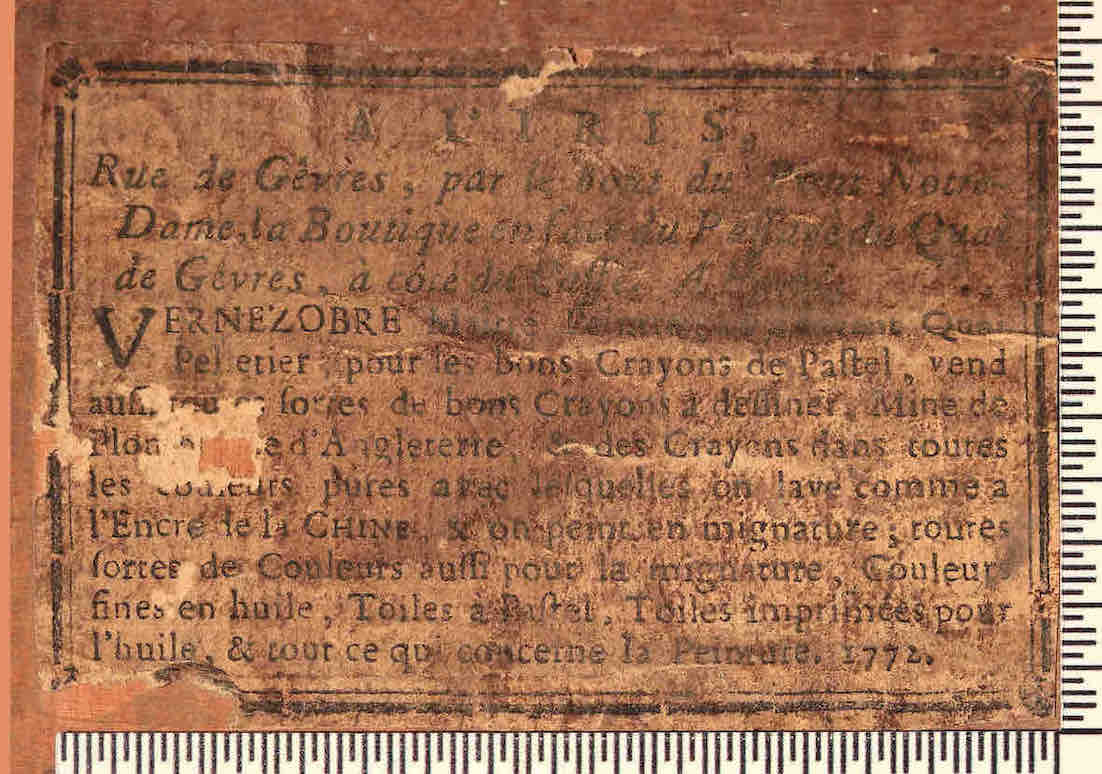 A L'IRIS,
Rue de Gêvres, par le bout du Pont Notre-
Dame, la Boutique en face du Passage du Quai
de Gêvres, à côté du A
VERNEZOBRE Quai
Pelletier, pour les bons Crayons de Paſtel, vend
auſſi toutes ſortes de bons Crayons à deſſiner, Mine de
Plomb d'Angleterre, & des Crayons dans toutes
les couleurs pures avec leſquelles on lave comme à
l'Encre de la CHINE, & on peint en mignature; toutes
ſortes de Couleurs auſſi pour la mignature, Couleurs
fines en huile, Toiles à Paſtel, Toiles imprimées pour
l'huile, & tout ce qui concerne la Peinture. 1772.